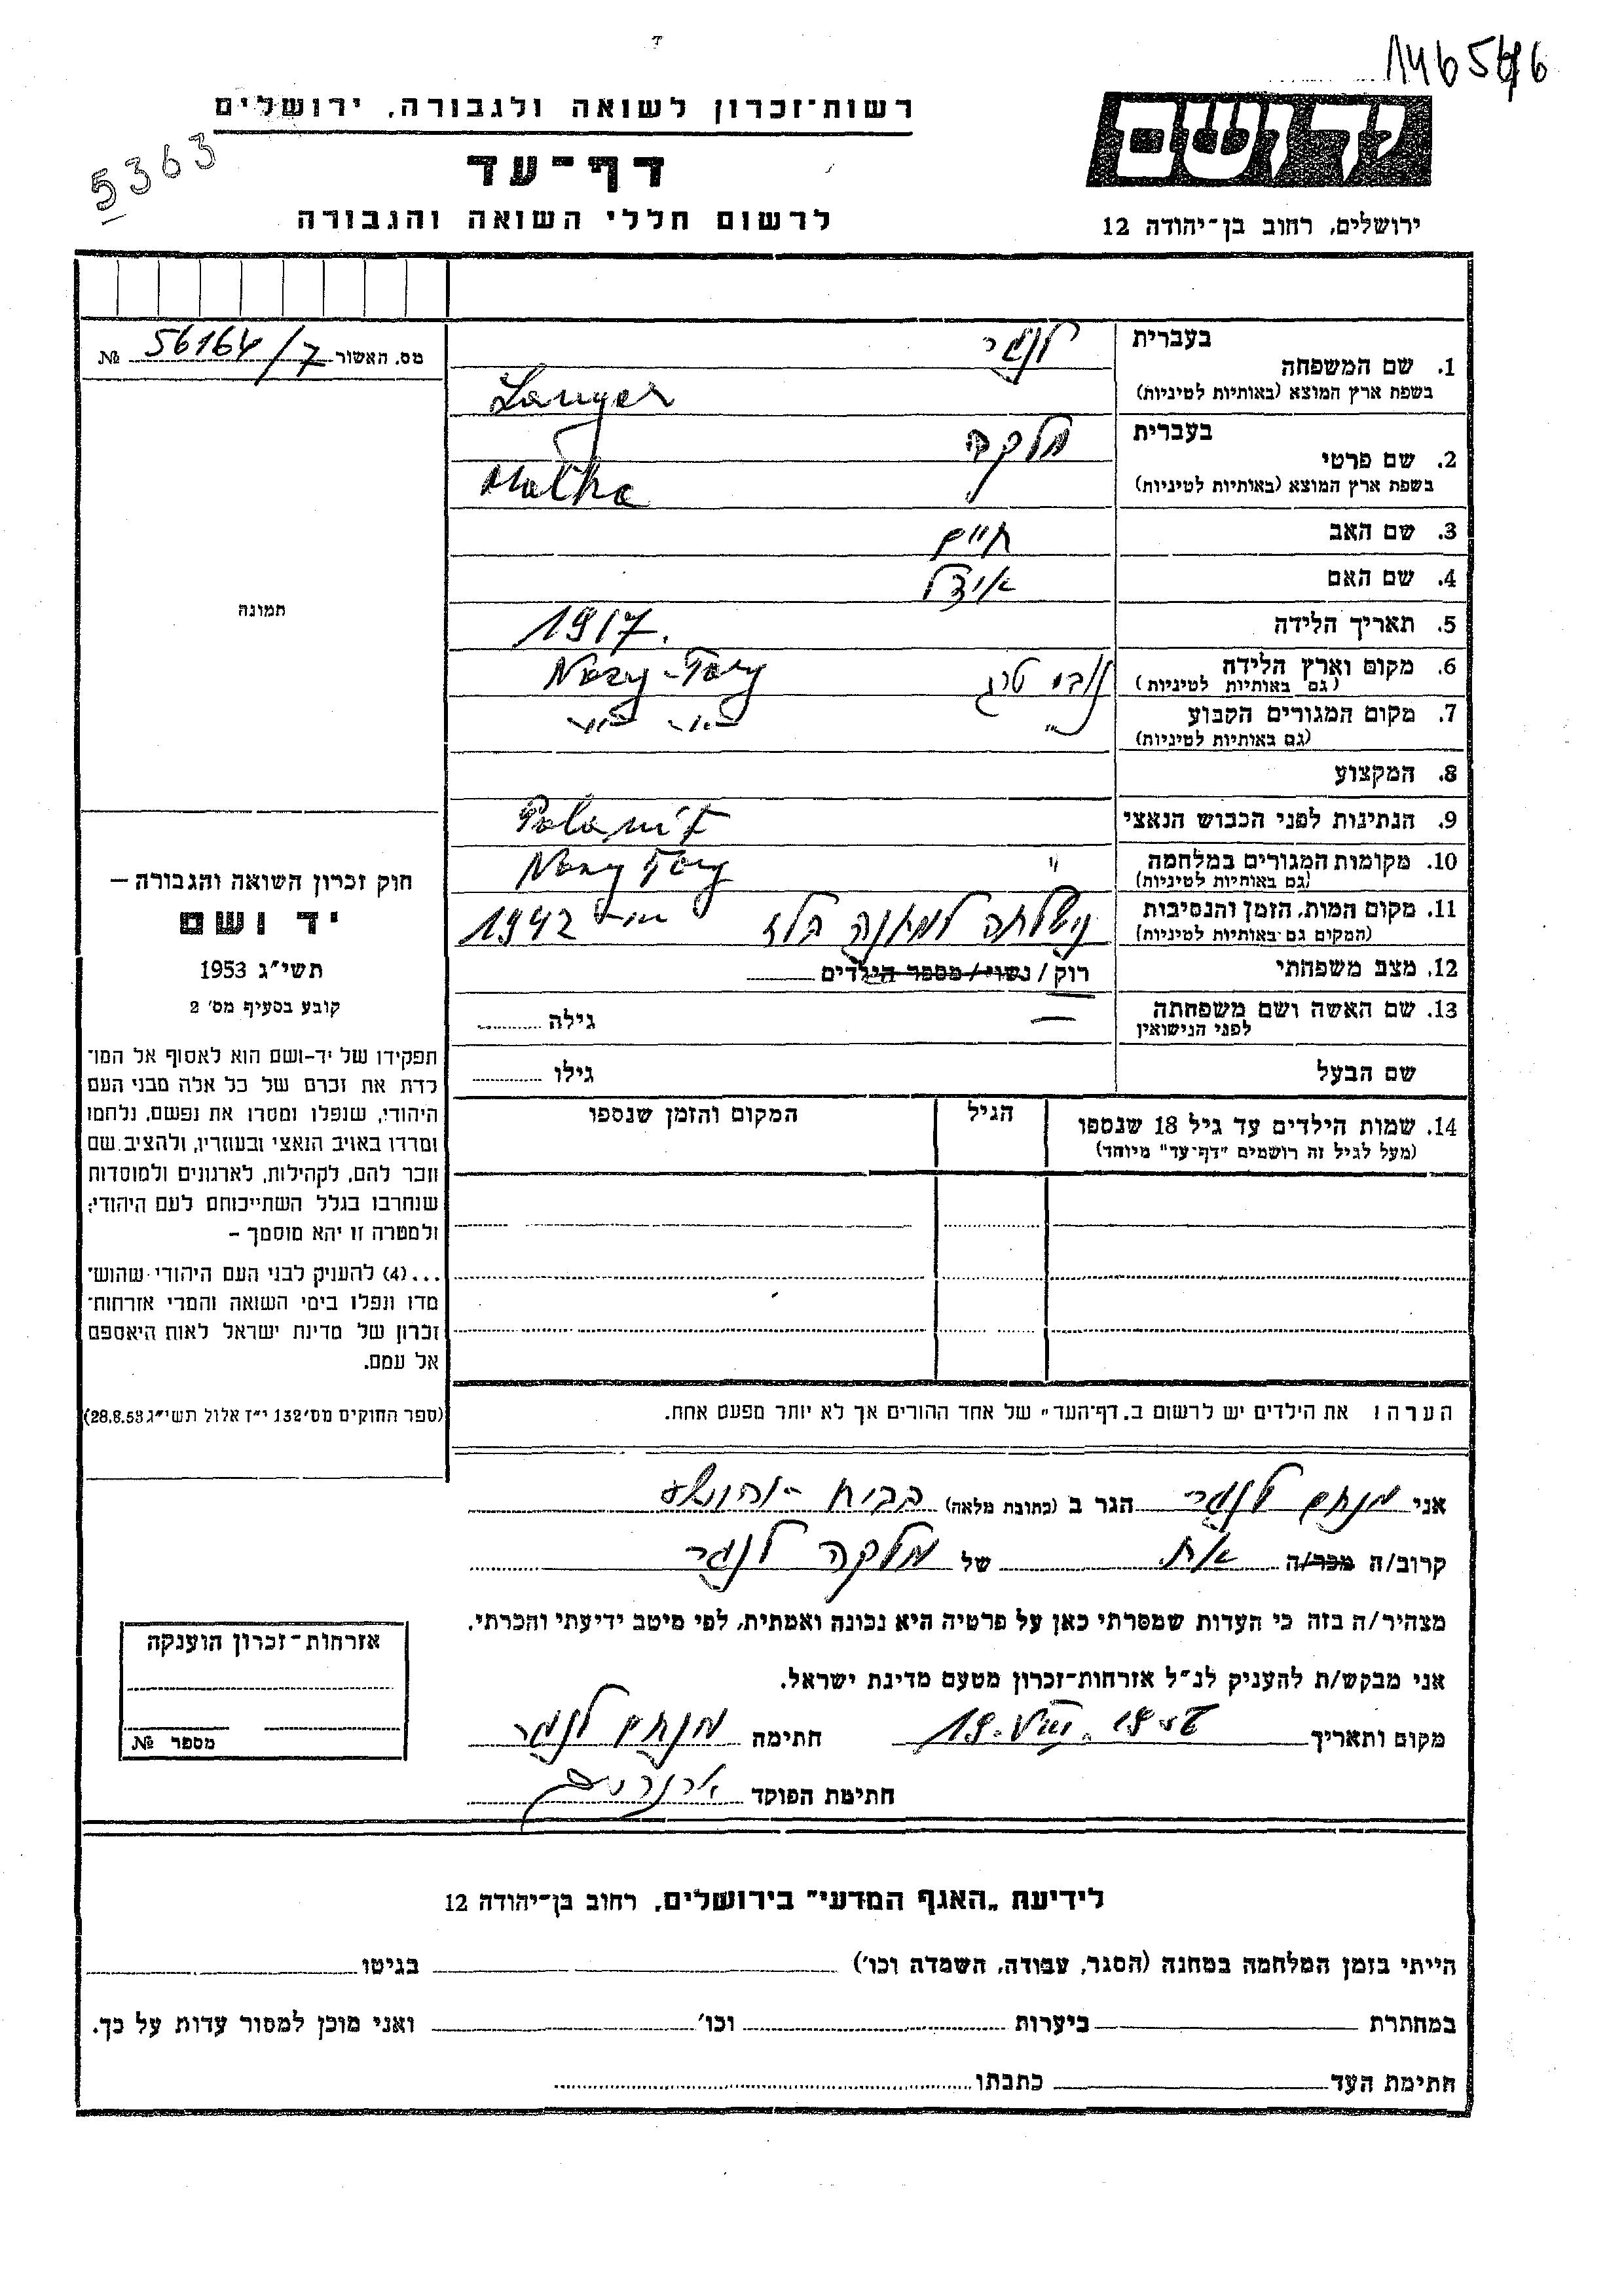 146546
רשות־זכרון לשואה ולגבורה, ירושלים
5363
דף־עד
לרשום חללי השואה והגבורה
ידושם
ירושלים, רחוב בן־יהודה 12
מס. האשור 56164/7 №
בעברית לנגר
1. שם המשפחה
בשפת ארץ המוצא (באותיות לטיניות) Langer
בעברית מלקה
2. שם פרטי
בשפת ארץ המוצא (באותיות לטיניות) Malka
3. שם האב חיים
4. שם האם אידל
תמונה
5. תאריך הלידה 1917.
6. מקום וארץ הלידה נובי טרג Novy-Targ
(גם באותיות לטיניות)
7. מקום המגורים הקבוע "
(גם באותיות לטיניות)
8. המקצוע
9. הנתינות לפני הכבוש הנאצי
10. מקומות המגורים במלחמה " Novy Targ
(גם באותיות לטיניות)
11. מקום המות, הזמן והנסיבות נשלחה למחנה בלז 1942
(המקום גם באותיות לטיניות)
12. מצב משפחתי רוק / נשוי / מספר הילדים
13. שם האשה ושם משפחתה — גילה
לפני הנישואין
שם הבעל גילו
14. שמות הילדים עד גיל 18 שנספו הגיל המקום והזמן שנספו
(מעל לגיל זה רושמים "דף־עד" מיוחד)
חוק זכרון השואה והגבורה —
יד ושם
תשי"ג 1953
קובע בסעיף מס' 2
תפקידו של יד-ושם הוא לאסוף אל המו־
לדת את זכרם של כל אלה מבני העם
היהודי, שנפלו ומסרו את נפשם, נלחמו
ומרדו באויב הנאצי ובעוזריו, ולהציב שם
וזכר להם, לקהילות, לארגונים ולמוסדות
שנחרבו בגלל השתייכותם לעם היהודי;
ולמטרה זו יהא מוסמך —
...(4) להעניק לבני העם היהודי שהוש־
מדו ונפלו בימי השואה והמרי אזרחות־
זכרון של מדינת ישראל לאות היאספם
אל עמם.
(ספר החוקים מס' 132 י"ז אלול תשי"ג 28.8.53)
הערה: את הילדים יש לרשום ב„דף־העד" של אחד ההורים אך לא יותר מפעם אחת.
אני מנחם לנגר הגר ב (כתובת מלאה)
קרוב/ה מכר/ה אח של מלקה לנגר
מצהיר/ה בזה כי העדות שמסרתי כאן על פרטיה היא נכונה ואמתית, לפי מיטב ידיעתי והכרתי.
אני מבקש/ת להעניק לנ"ל אזרחות־זכרון מטעם מדינת ישראל.
מקום ותאריך 19.VIII. חתימה מנחם לנגר
חתימת הפוקד
אזרחות־זכרון הוענקה
מספר №
לידיעת „האגף המדעי" בירושלים, רחוב בן־יהודה 12
הייתי בזמן המלחמה במחנה (הסגר, עבודה, השמדה וכו') בגיטו
במחתרת ביערות וכו' ואני מוכן למסור עדות על כך.
חתימת העד כתבתו